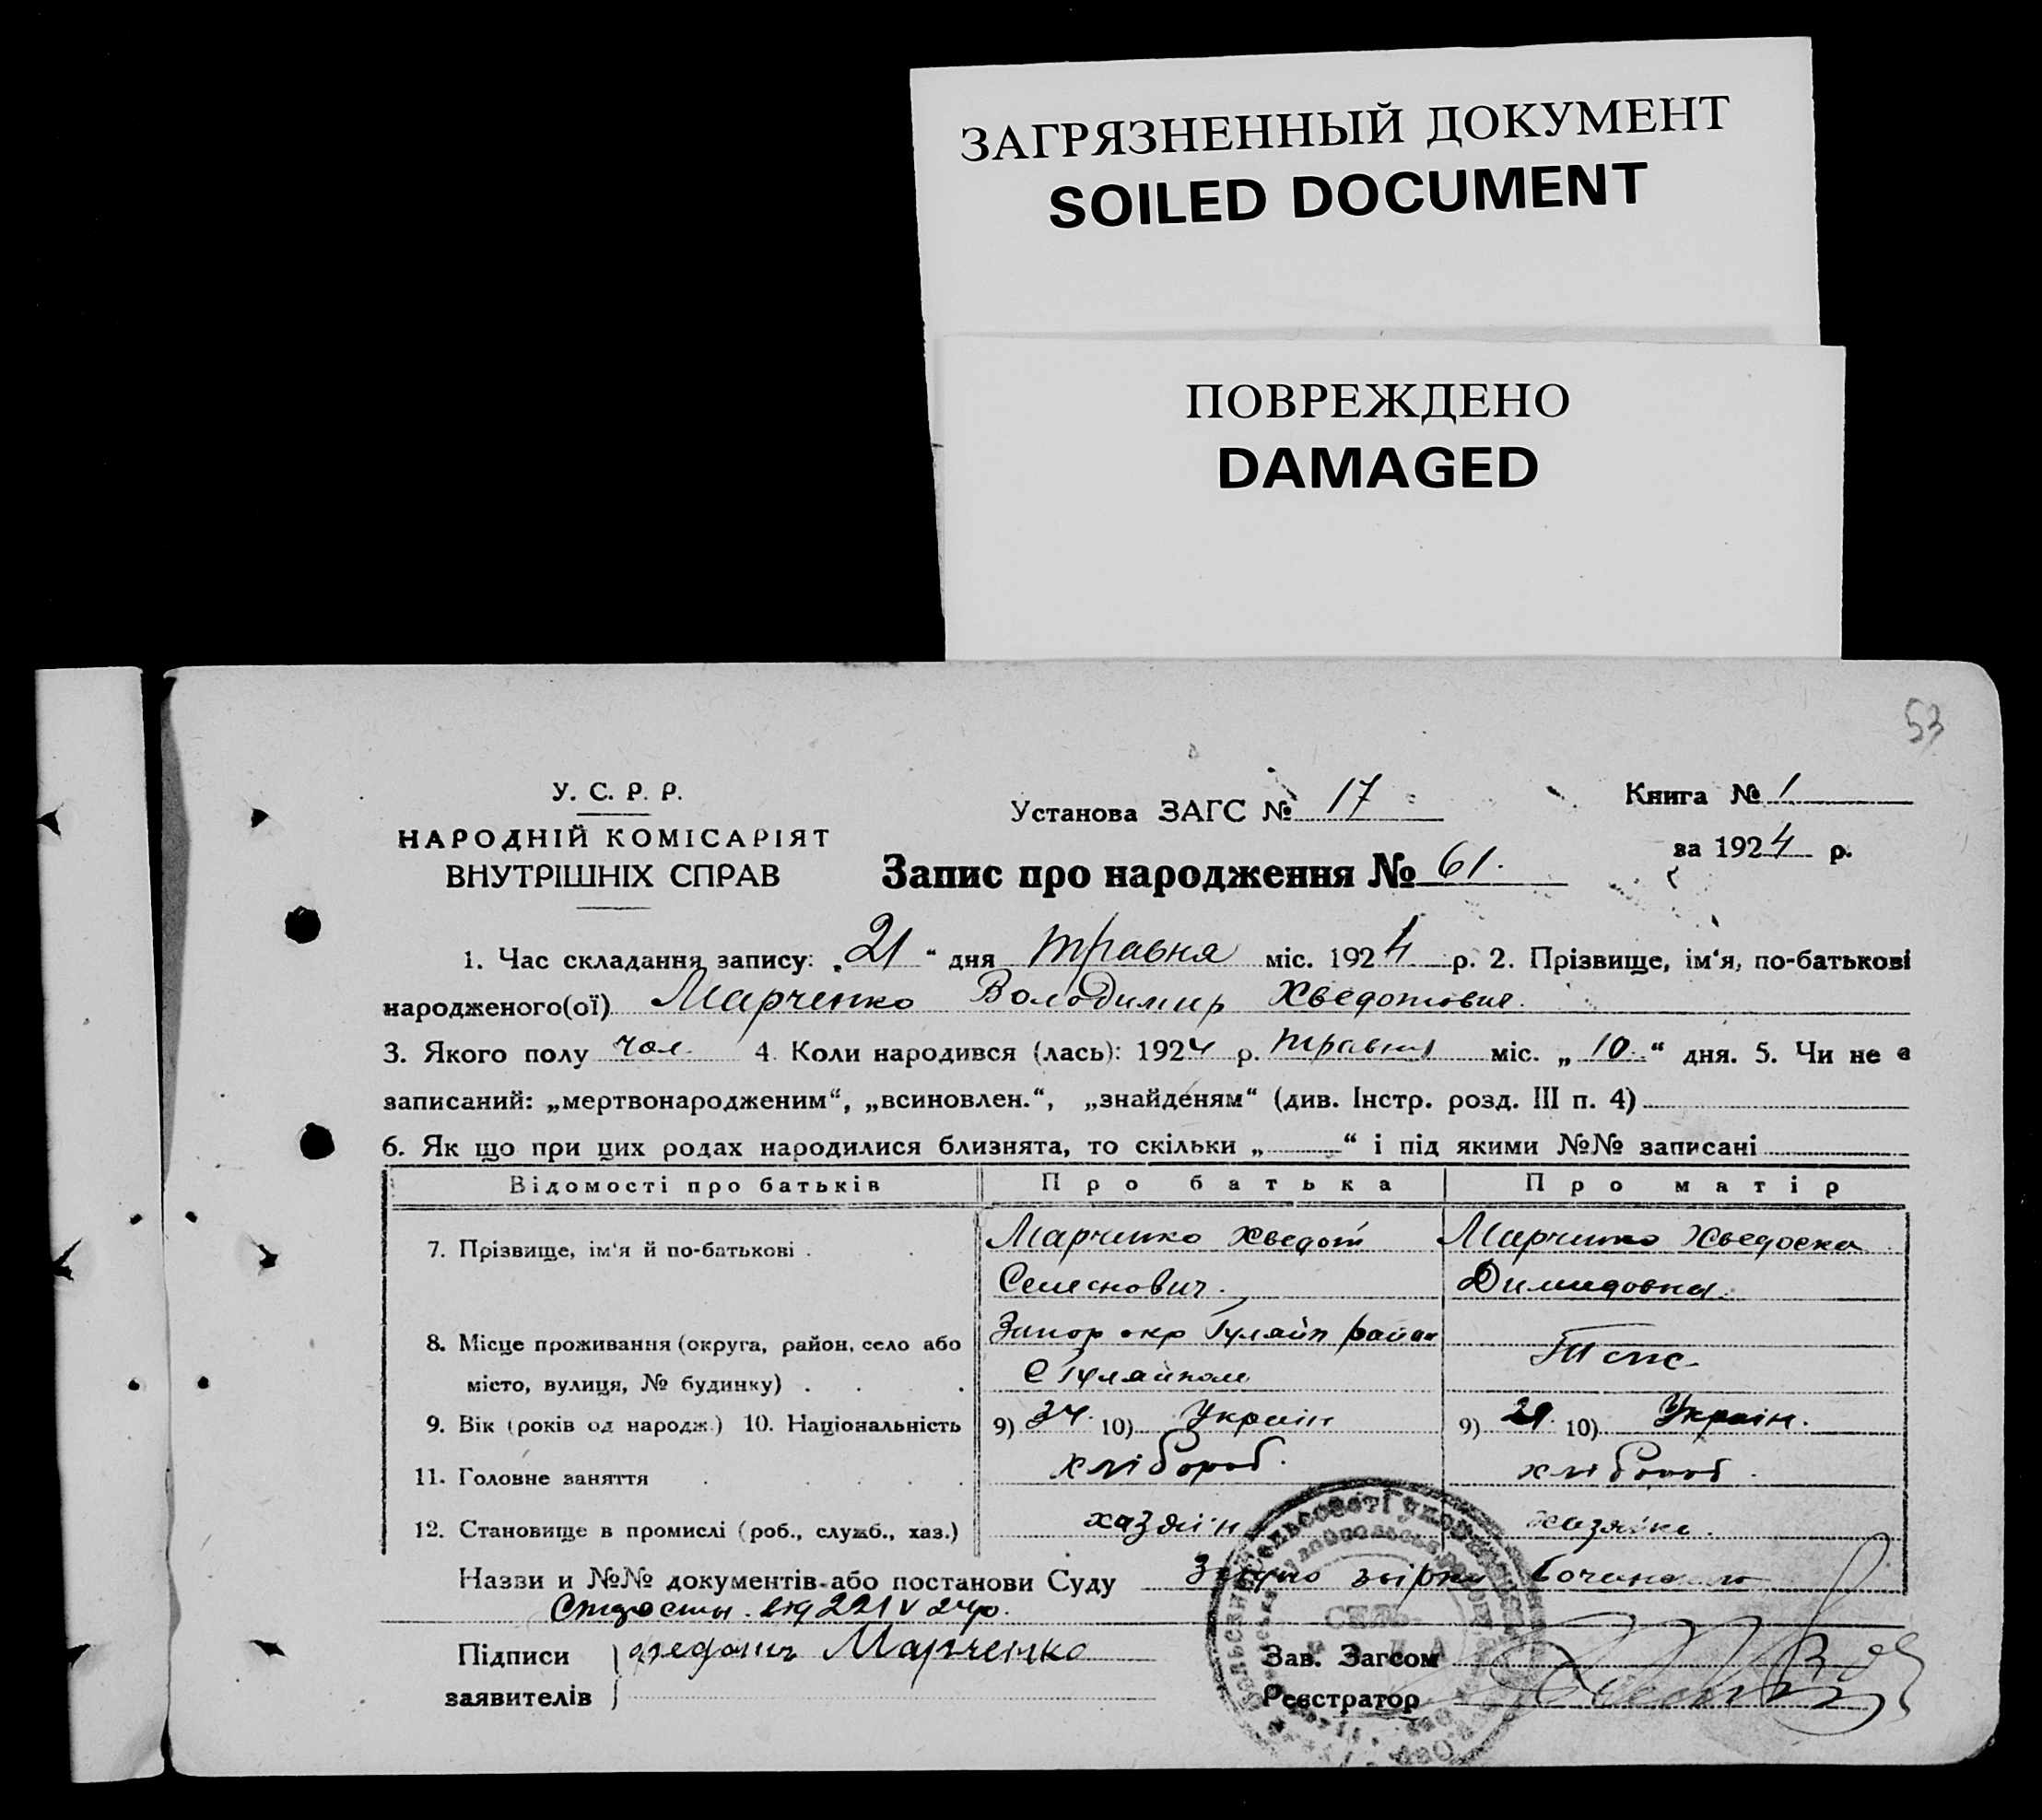 ЗАГРЯЗНЕННЫЙ ДОКУМЕНТ
SOILED DOCUMENT
ПОВРЕЖДЕНО
DAMAGED
53
У. С. Р. Р.
НАРОДНІЙ КОМІСАРІЯТ
ВНУТРІШНІХ СПРАВ
Установа ЗАГС № 17
Книга № 1
за 1924 р.
Запис про народження № 61.
1. Час складання запису: „21“ дня травня міс. 1924 р. 2. Прізвище, ім‘я, по-батькові
народженого(ої) Марченко Володимир Хведотович.
3. Якого полу чол. 4. Коли народився (лась): 1924 р. травня міс. „10.“ дня. 5. Чи не є
записаний: „мертвонародженим“, „всиновлен.“, „знайденям“ (див. Інстр. розд. III п. 4)
6. Як що при цих родах народилися близнята, то скільки „ “ і під якими №№ записані
Відомості про батьків Про батька Про матір
7. Прізвище, ім‘я й по-батькові . Марченко Хведот Марченко Хведоска
Семенович. Димидовна.
8. Місце проживання (округа, район, село або Запор окр Гуляйп район
місто, вулиця, № будинку) . . . С Гуляйполе
9. Вік (років од народж.) 10. Національність 9) 34. 10) Украін 9) 29. 10) Украін.
11. Головне заняття хлібороб. хлібороб.
12. Становище в промислі (роб., служб., хаз.) хазяін хазяйка.
Назви и №№ документів або постанови Суду
від 22/V 24р.
Підписи Федотъ Марченко Зав. Загсом
заявителів Реєстратор